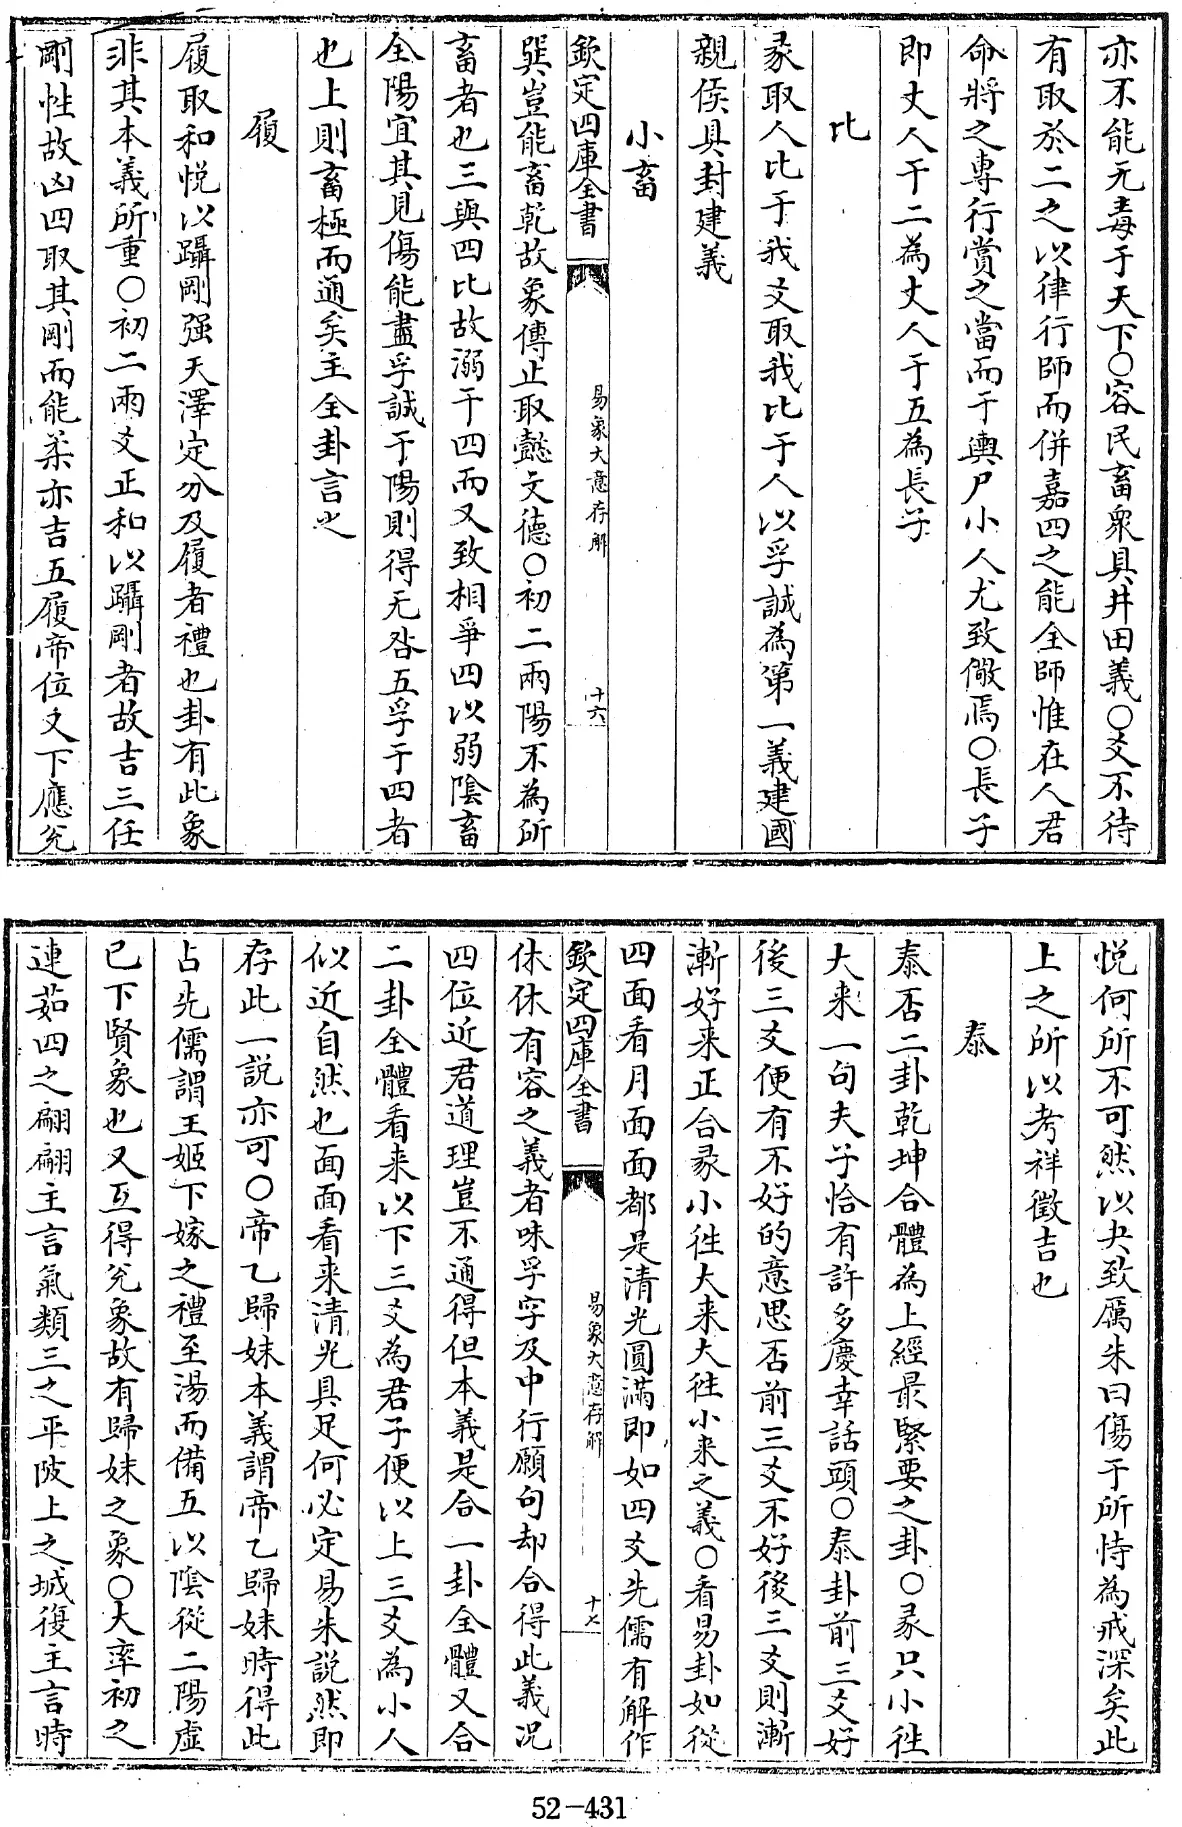 亦不能无毒于天下○容民畜衆具井田義○爻不待
有取於二之以律行師而併嘉四之能全師惟在人君
命將之專行賞之當而于輿尸小人尤致儆焉○長子
即丈人于二為丈人于五為長子
比
彖取人比于我爻取我比于人以孚誠為第一義建國
親侯具封建義
小畜
欽定四庫全書
易象大意存解
十六
巽豈能畜乾故象傳止取懿文德○初二兩陽不為所
畜者也三與四比故溺于四而又致相爭四以弱陰畜
全陽宜其見傷能盡孚誠于陽則得无咎五孚于四者
也上則畜極而通矣主全卦言之
履
履取和悅以躡剛强天澤定分及履者禮也卦有此象
非其本義所重○初二兩爻正和以躡剛者故吉三任
剛性故凶四取其剛而能柔亦吉五履帝位又下應兊
悅何所不可然以夬致厲朱曰傷于所恃為戒深矣此
上之所以考祥徵吉也
泰
泰否二卦乾坤合體為上經最緊要之卦○彖只小徃
大来一句夫子恰有許多慶幸話頭○泰卦前三爻好
後三爻便有不好的意思否前三爻不好後三爻則漸
漸好来正合彖小徃大来大徃小来之義○看易卦如從
四面看月面面都是清光圓滿即如四爻先儒有解作
欽定四庫全書
易象大意存解
十七
休休有容之義者味孚字及中行願句却合得此義况
四位近君道理豈不通得但本義是合一卦全體又合
二卦全體看来以下三爻為君子便以上三爻為小人
似近自然也面面看来清光具足何必定易朱說然即
存此一說亦可○帝乙歸妹本義謂帝乙歸妹時得此
占先儒謂王姬下嫁之禮至湯而備五以陰從二陽虛
已下賢象也又互得兊象故有歸妹之象○大率初之
連茹四之翩翩主言氣類三之平陂上之城復主言時
52-431